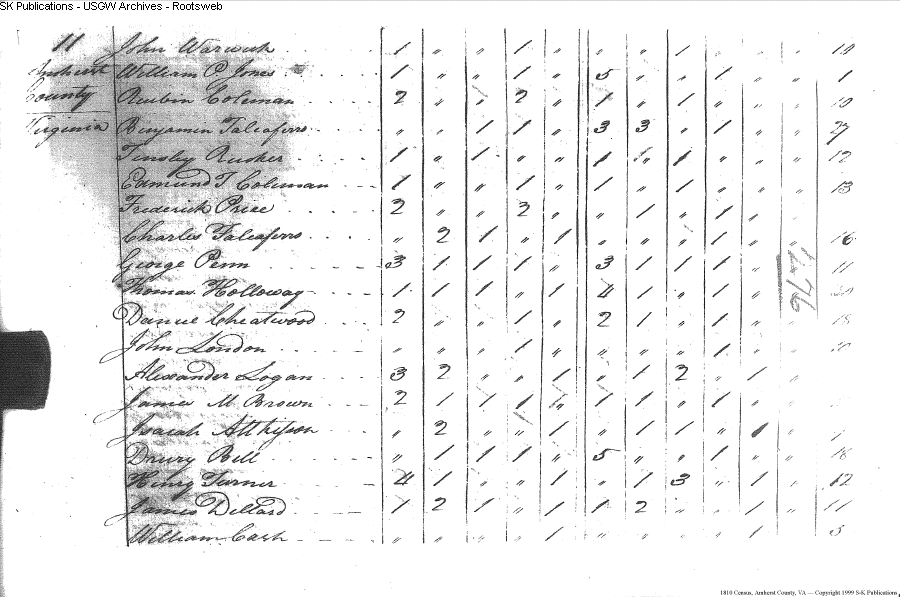 SK Publications - USGW Archives - Rootsweb
11 John Warwick 1 " " 1 " " " 1 " " " 14
Amherst William P Jones 1 " " 1 " 5 " " 1 " " 1
County Reubin Coleman 2 " " 2 " 1 " 1 " " " 19
Virginia Benjamin Taliaferro " " 1 1 " 3 3 " 1 " " 27
Tinsley Rucker 1 " 1 " " 1 " 1 " " " 12
Edmund T Coleman 1 " " 1 " 1 " 1 " " " 13
Frederick Price 2 " " 2 " " 1 " 1
Charles Taliaferro " 2 1 " 1 " " " 1 " " 16
George Penn 3 1 1 1 " 3 1 1 1 " " 11
Thomas Holloway 1 1 1 " 1 4 1 " 1 " "
Daniel Cheatwood 2 " " 1 " 2 1 " 1 " " 18
John London " " " 1 " " " " 1 " "
Alexander Logan 3 2 " " 1 " 1 2 " 1 "
James M Brown 2 1 1 1 " 1 1 " 1 " "
Isaiah Attkisson " 2 " " 1 " 1 1 " 1 "
Drury Bell " 1 1 1 " 5 " " 1 " " 18
Henry Turner 4 1 " " 1 " 1 3 " 1 " 12
James Dillard 1 2 1 " 1 1 2 " " 1 " 11
William Cash " " " " 1 " " " " 1 " 3
1810 Census, Amherst County, VA — Copyright 1999 S-K Publications